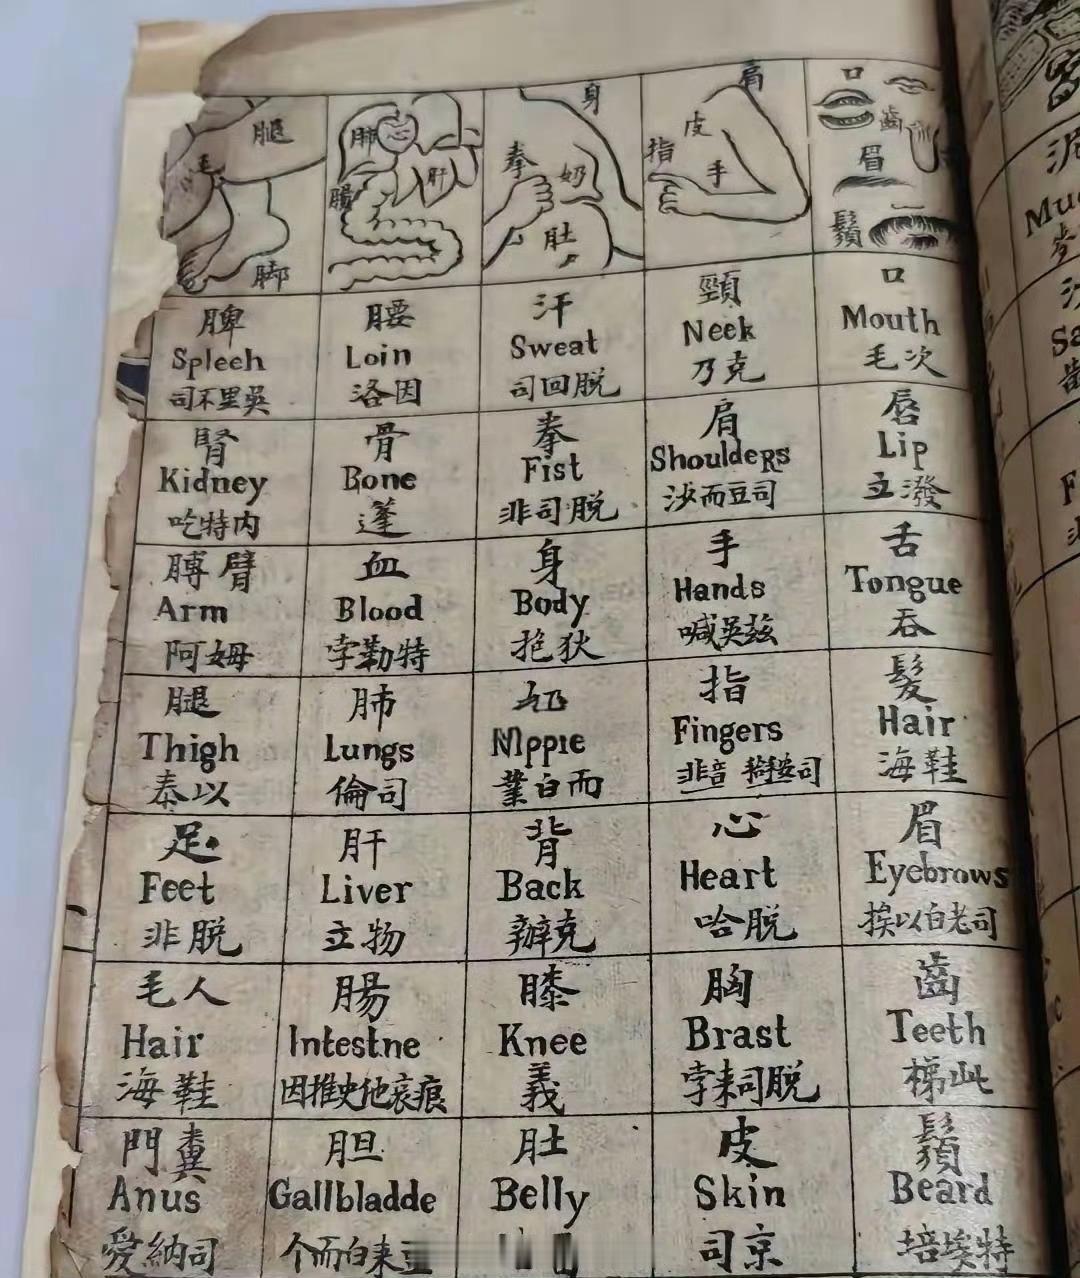 肩
口
齒
眉
鬚
身
拳
奶
肚
皮
指
手
肺
心
肝
腸
腿
毛
脚
口
Mouth
毛次
唇
Lip
立潑
舌
Tongue
吞
髮
Hair
海鞋
眉
Eyebrows
挨以白老司
齒
Teeth
梯此
鬚
Beard
培埃特
頸
Neek
乃克
肩
Shoulders
沙而豆司
手
Hands
喊吳兹
指
Fingers
非音
心
Heart
哈脱
胸
Brast
孛来司脱
皮
Skin
司京
汗
Sweat
司回脱
拳
Fist
非司脱
身
Body
抱狄
奶
Nippie
業白而
背
Back
辦克
膝
Knee
義
肚
Belly
腰
Loin
洛因
骨
Bone
蓬
血
Blood
孛勒特
肺
Lungs
倫司
肝
Liver
立物
腸
Intestne
因推史他衰痕
胆
Gallbladde
个而白来
脾
Spleeh
司不里吳
腎
Kidney
吃特内
膊臂
Arm
阿姆
腿
Thigh
泰以
足
Feet
非脱
毛人
Hair
海鞋
門糞
Anus
愛納司